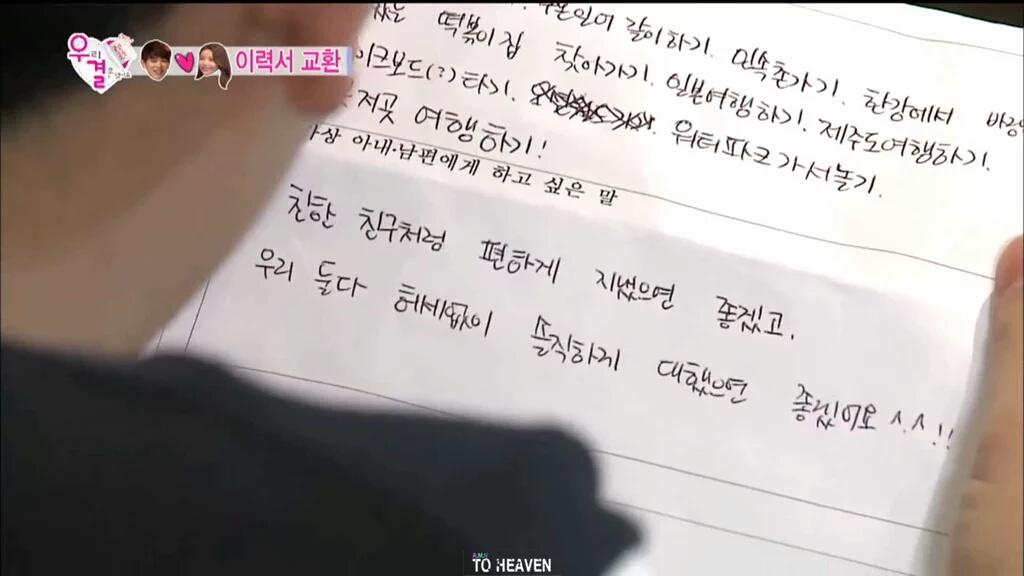 우리 결혼했어요
이력서 교환
같이하기. 민속촌가기. 한강에서
떡볶이집 찾아가기. 일본여행하기. 제주도여행하기.
이크보드(?)타기. 워터파크가서놀기.
저곳 여행하기!
상 아내·남편에게 하고 싶은 말
친한 친구처럼 편하게 지냈으면 좋겠고.
우리 둘다 허세없이 솔직하게 대했으면 좋겠어요 ^.^!!
TO HEAVEN